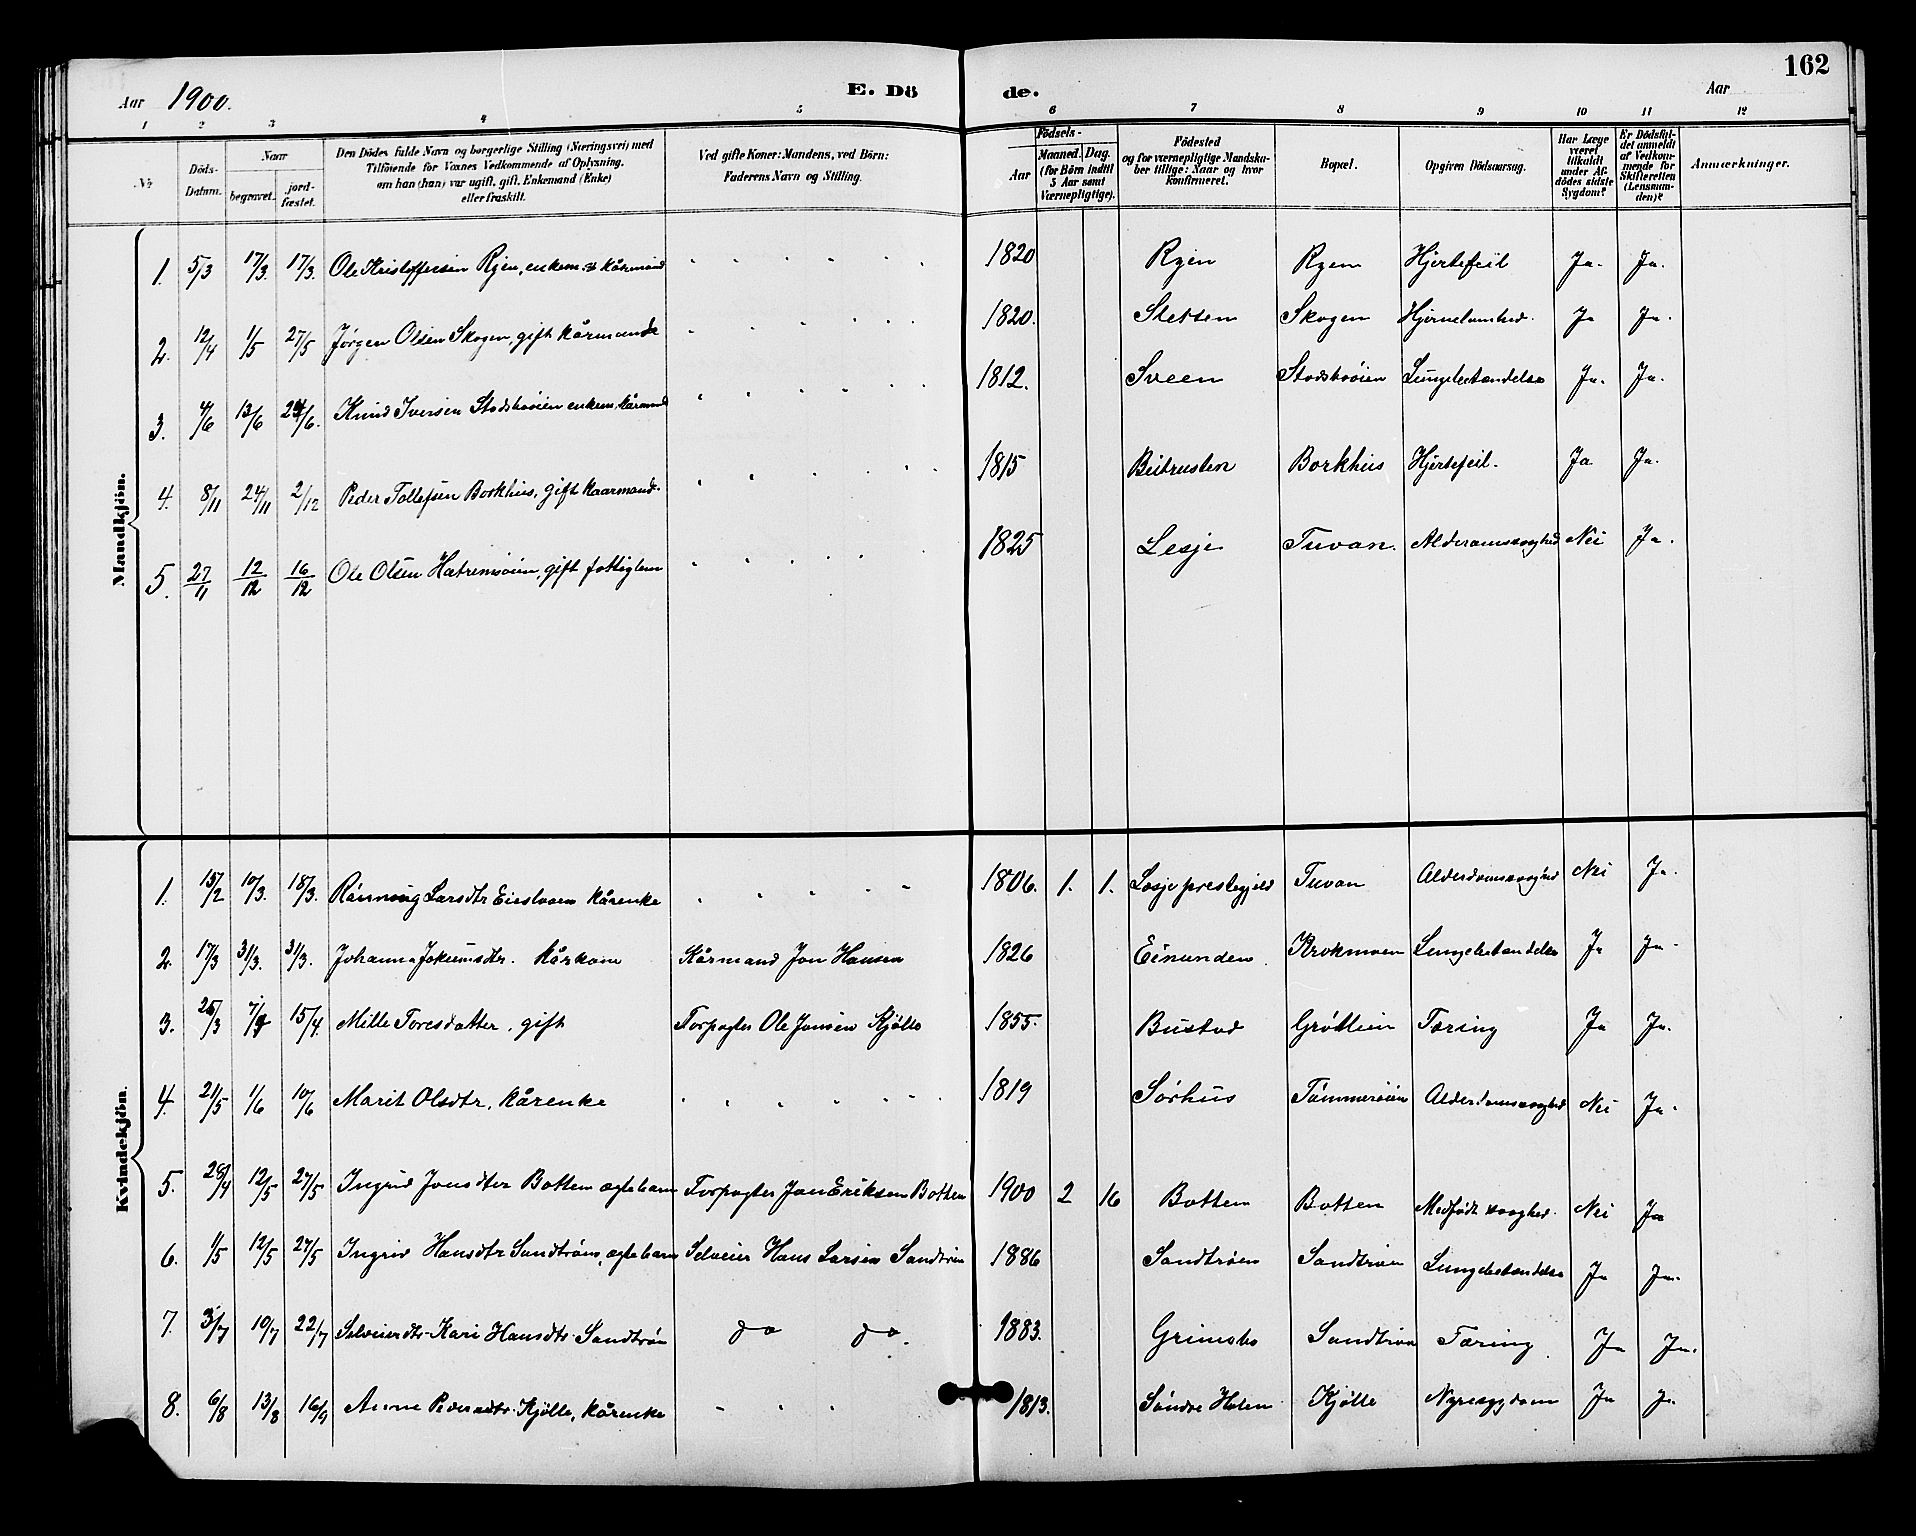 162
Aar 1900. E. Dö de. Aar
1 2 3 4 5 6 7 8 9 10 11 12
No Döds-Datum. Naar begravet. jord-fæstet. Den Dödes fulde Navn og borgerlige Stilling (Næringsvei) med Tilföiende for Voxnes Vedkommende af Oplysning, om han (hun) var ugift, gift, Enkemand (Enke) eller fraskilt. Ved gifte Koner: Mandens, ved Börn: Faderens Navn og Stilling. Födsels- Aar Maaned. Dag. (for Börn indtil 5 Aar samt Værnepligtige). Födested og for værnepligtige Mandskaber tillige: Naar og hvor konfirmeret. Bopæl. Opgiven Dödsaarsag. Har Læge været tilkaldt under Afdödes sidste Sygdom? Er Dödsfaldet anmeldt af Vedkommende for Skifteretten (Lensmanden)? Anmærkninger.
Mandkjön.
1. 5/3 17/3. 17/3. Ole Kristoffersen Rjen, enkem. kårmand 1820 Ryen Ryen Hjertefeil Ja. Ja.
2. 12/4 1/5 27/5 Jørgen Olsen Skogen, gift kårmand 1820. Sletten Skogen Hjernelamhed. Ja Ja.
3. 4/6 13/6 24/6. Knud Iversen Stadsbuøien enkem. kårmand 1812. Sveen Stadsbuøien Lungebetændelse Ja. Ja.
4. 8/11 24/11 2/12 Peder Tollefsen Borkhus, gift kaarmand. 1815 Beitrusten Borkhus Hjertefeil. Ja Ja.
5. 27/11 12/12 16/12 Ole Olsen Hatremoien, gift fattiglem 1825 Lesje Tuvan. Alderdomssvaghed Nei Ja.
Kvindekjön.
1. 15/2 10/3. 18/3. Rønnoug Larsdtr kårenke 1806. 1. 1. Lesje prestegjeld Tuvan Alderdomssvaghed Nei Ja.
2. 17/3 31/3. 31/3. Johanna Jokumsdtr. kårkone Kårmand Jon Hansen 1826 Einunden Krokmoen Lungebetændelse Ja Ja.
3. 25/3 15/4 Mille Toresdatter, gift Torpagter Ole Jonsen Kjølle 1855. Bustad Grøtlien Tæring Ja Ja.
4. 21/5 1/6 10/6 Marit Olsdtr, kårenke 1819 Sørhus Tømmerøien Alderdomssvaghed Nei Ja.
5. 28/4 12/5 27/5 Ingrid Jonsdtr Botten ægtebarn Torpagter Jon Eriksen Botten 1900 2 16 Botten Botten Medfødt svaghed. Nei Ja
6. 1/5 12/5 27/5 Ingrid Hansdtr Sandtrøen, ægtebarn Selveier Hans Larsen Sandtrøen 1886 Sandtrøen Sandtrøen Lungebetændelse Ja Ja.
7. 3/7 10/7 22/7 Selveierdtr. Kari Hansdtr. Sandtrøn do do. 1883. Grimsbo Sandtrøen Tæring Ja Ja.
8. 6/8 13/8 16/9 Anne Pedersdtr. Kjølle, kårenke 1813. Søndre Holen Kjølle Nyresygdom Ja Ja.